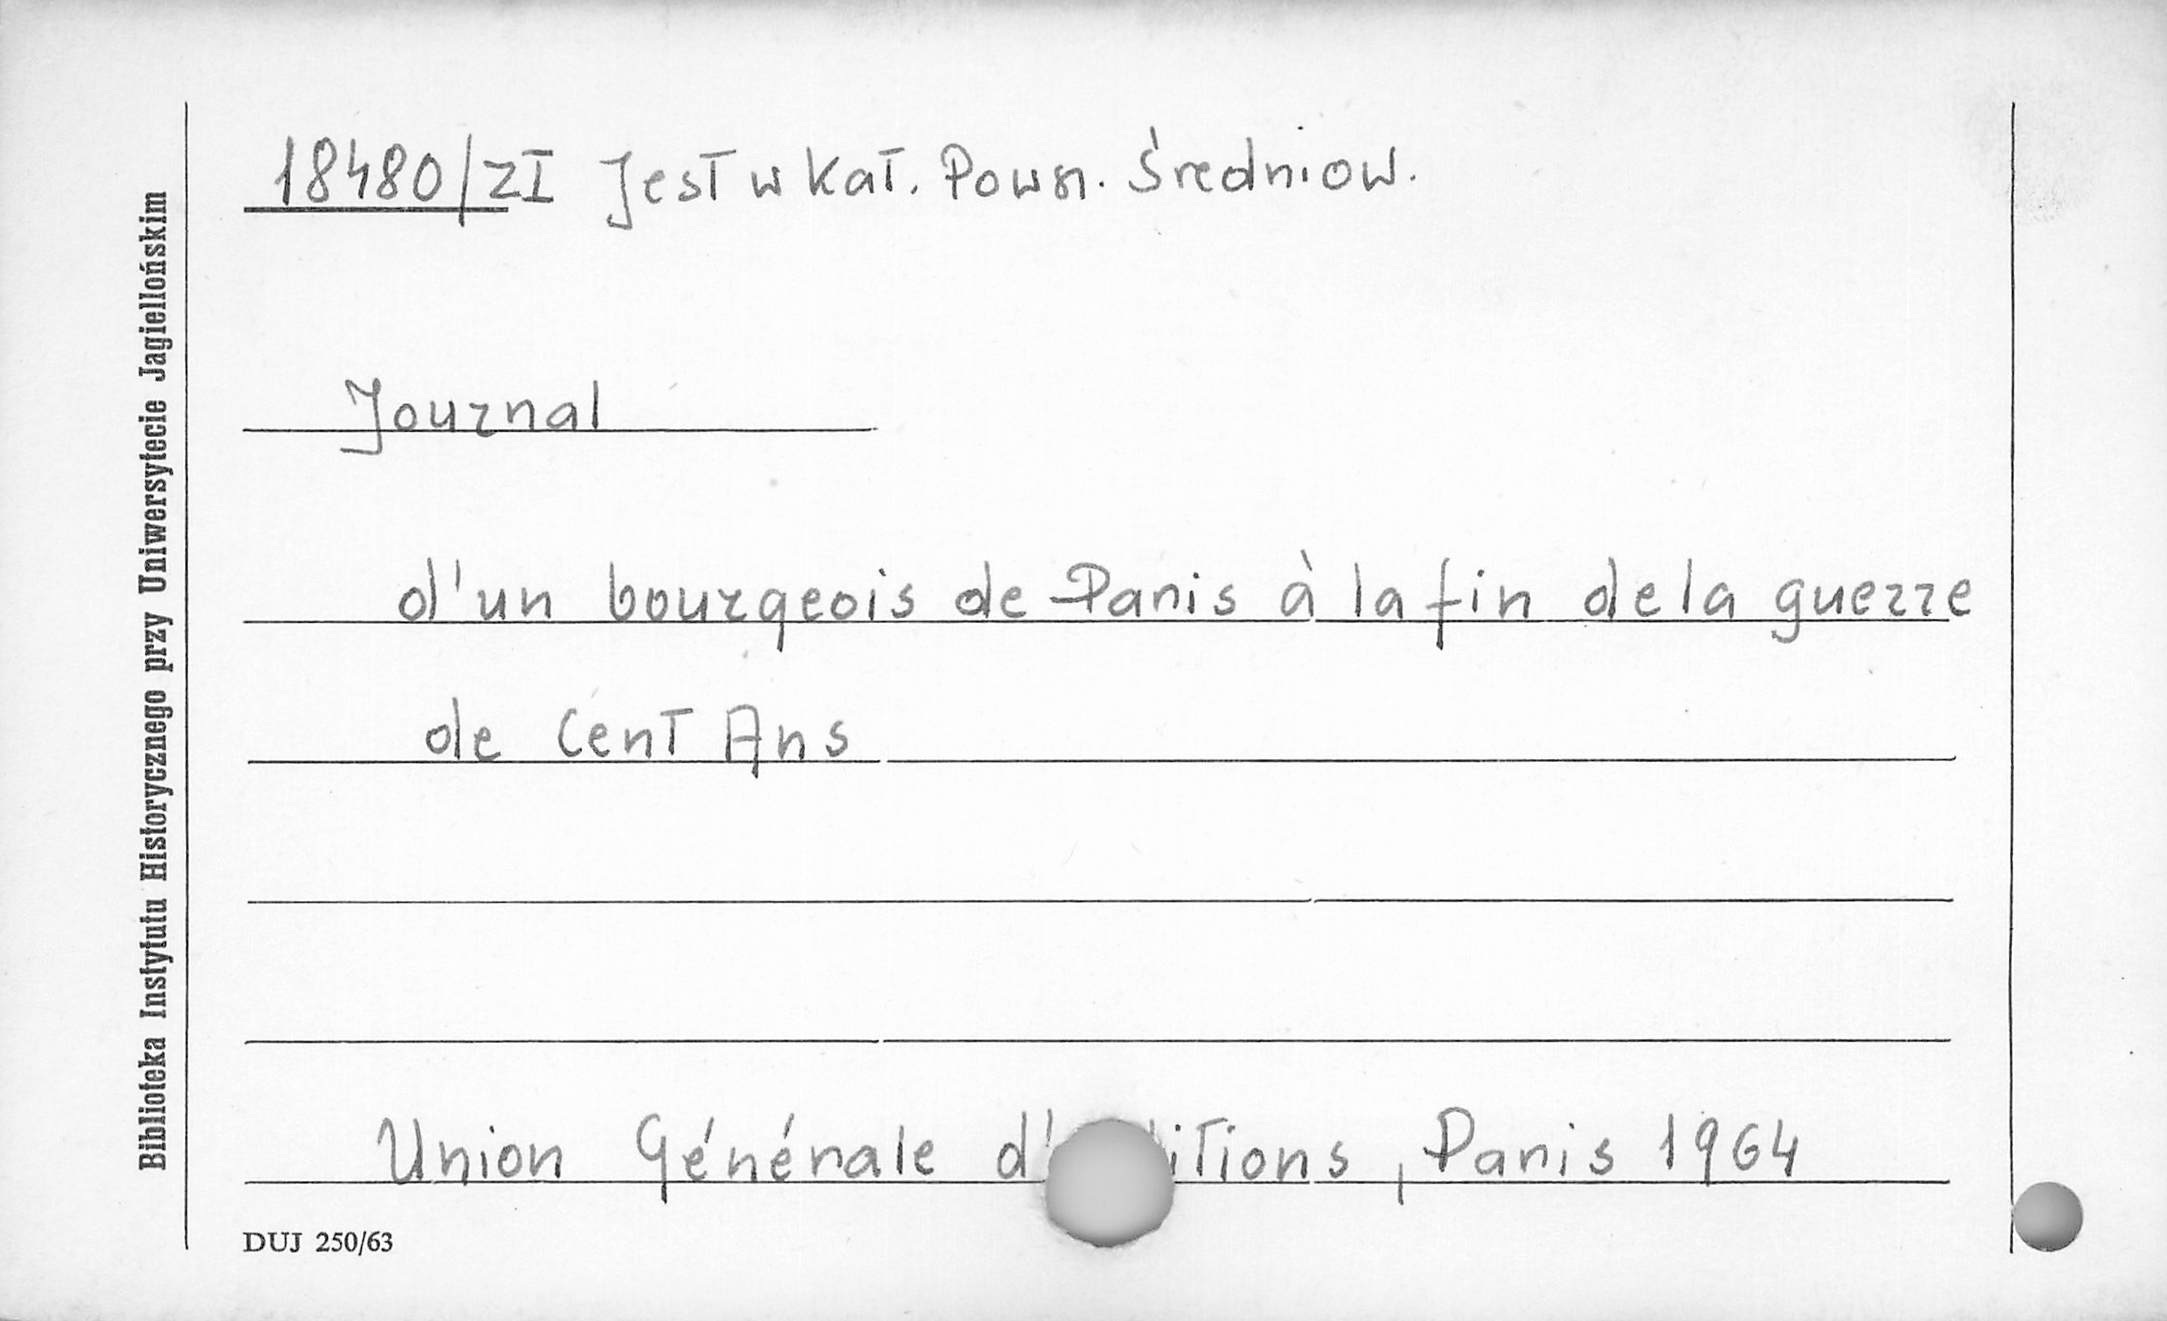 18480/ZI Jest w Kat. Pows. Średniow.
Journal
d'un bourgeois de Paris à la fin de la guerre
de Cent Ans
Union Générale d' itions, Paris 1964
DUJ 250/63
Biblioteka Instytutu Historycznego przy Uniwersytecie Jagiellońskim